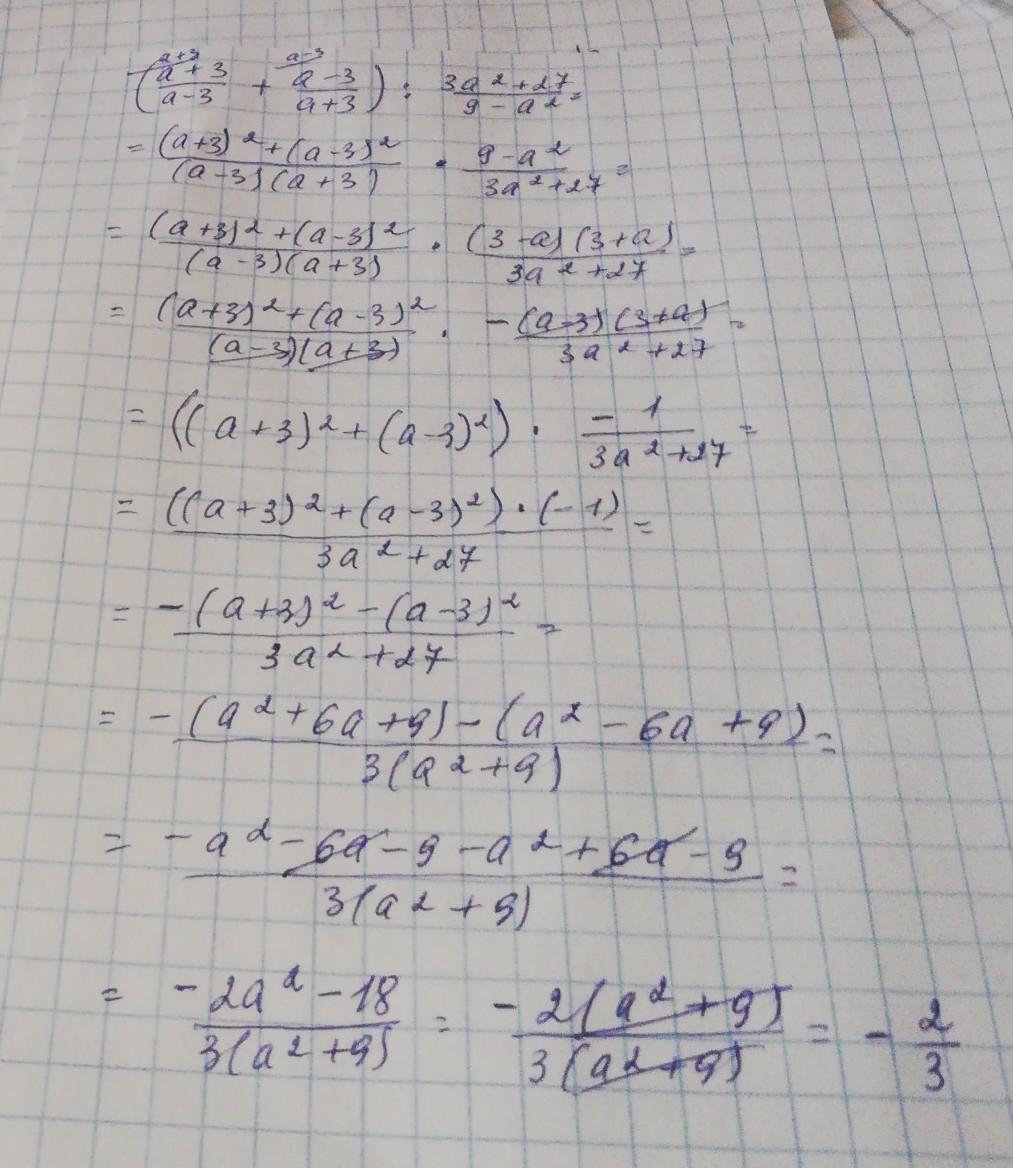 (a+3/a-3 + a-3/a+3) : 3a²+27/9-a² =
= (a+3)²+(a-3)²/(a-3)(a+3) · 9-a²/3a²+27 =
= (a+3)²+(a-3)²/(a-3)(a+3) · (3-a)(3+a)/3a²+27 =
= (a+3)²+(a-3)²/(a-3)(a+3) · -(a-3)(3+a)/3a²+27 =
= ((a+3)²+(a-3)²) · -1/3a²+27 =
= ((a+3)²+(a-3)²)·(-1)/3a²+27 =
= -(a+3)²-(a-3)²/3a²+27 =
= -(a²+6a+9)-(a²-6a+9)/3(a²+9) =
= -a²-6a-9-a²+6a-9/3(a²+9) =
= -2a²-18/3(a²+9) = -2(a²+9)/3(a²+9) = -2/3